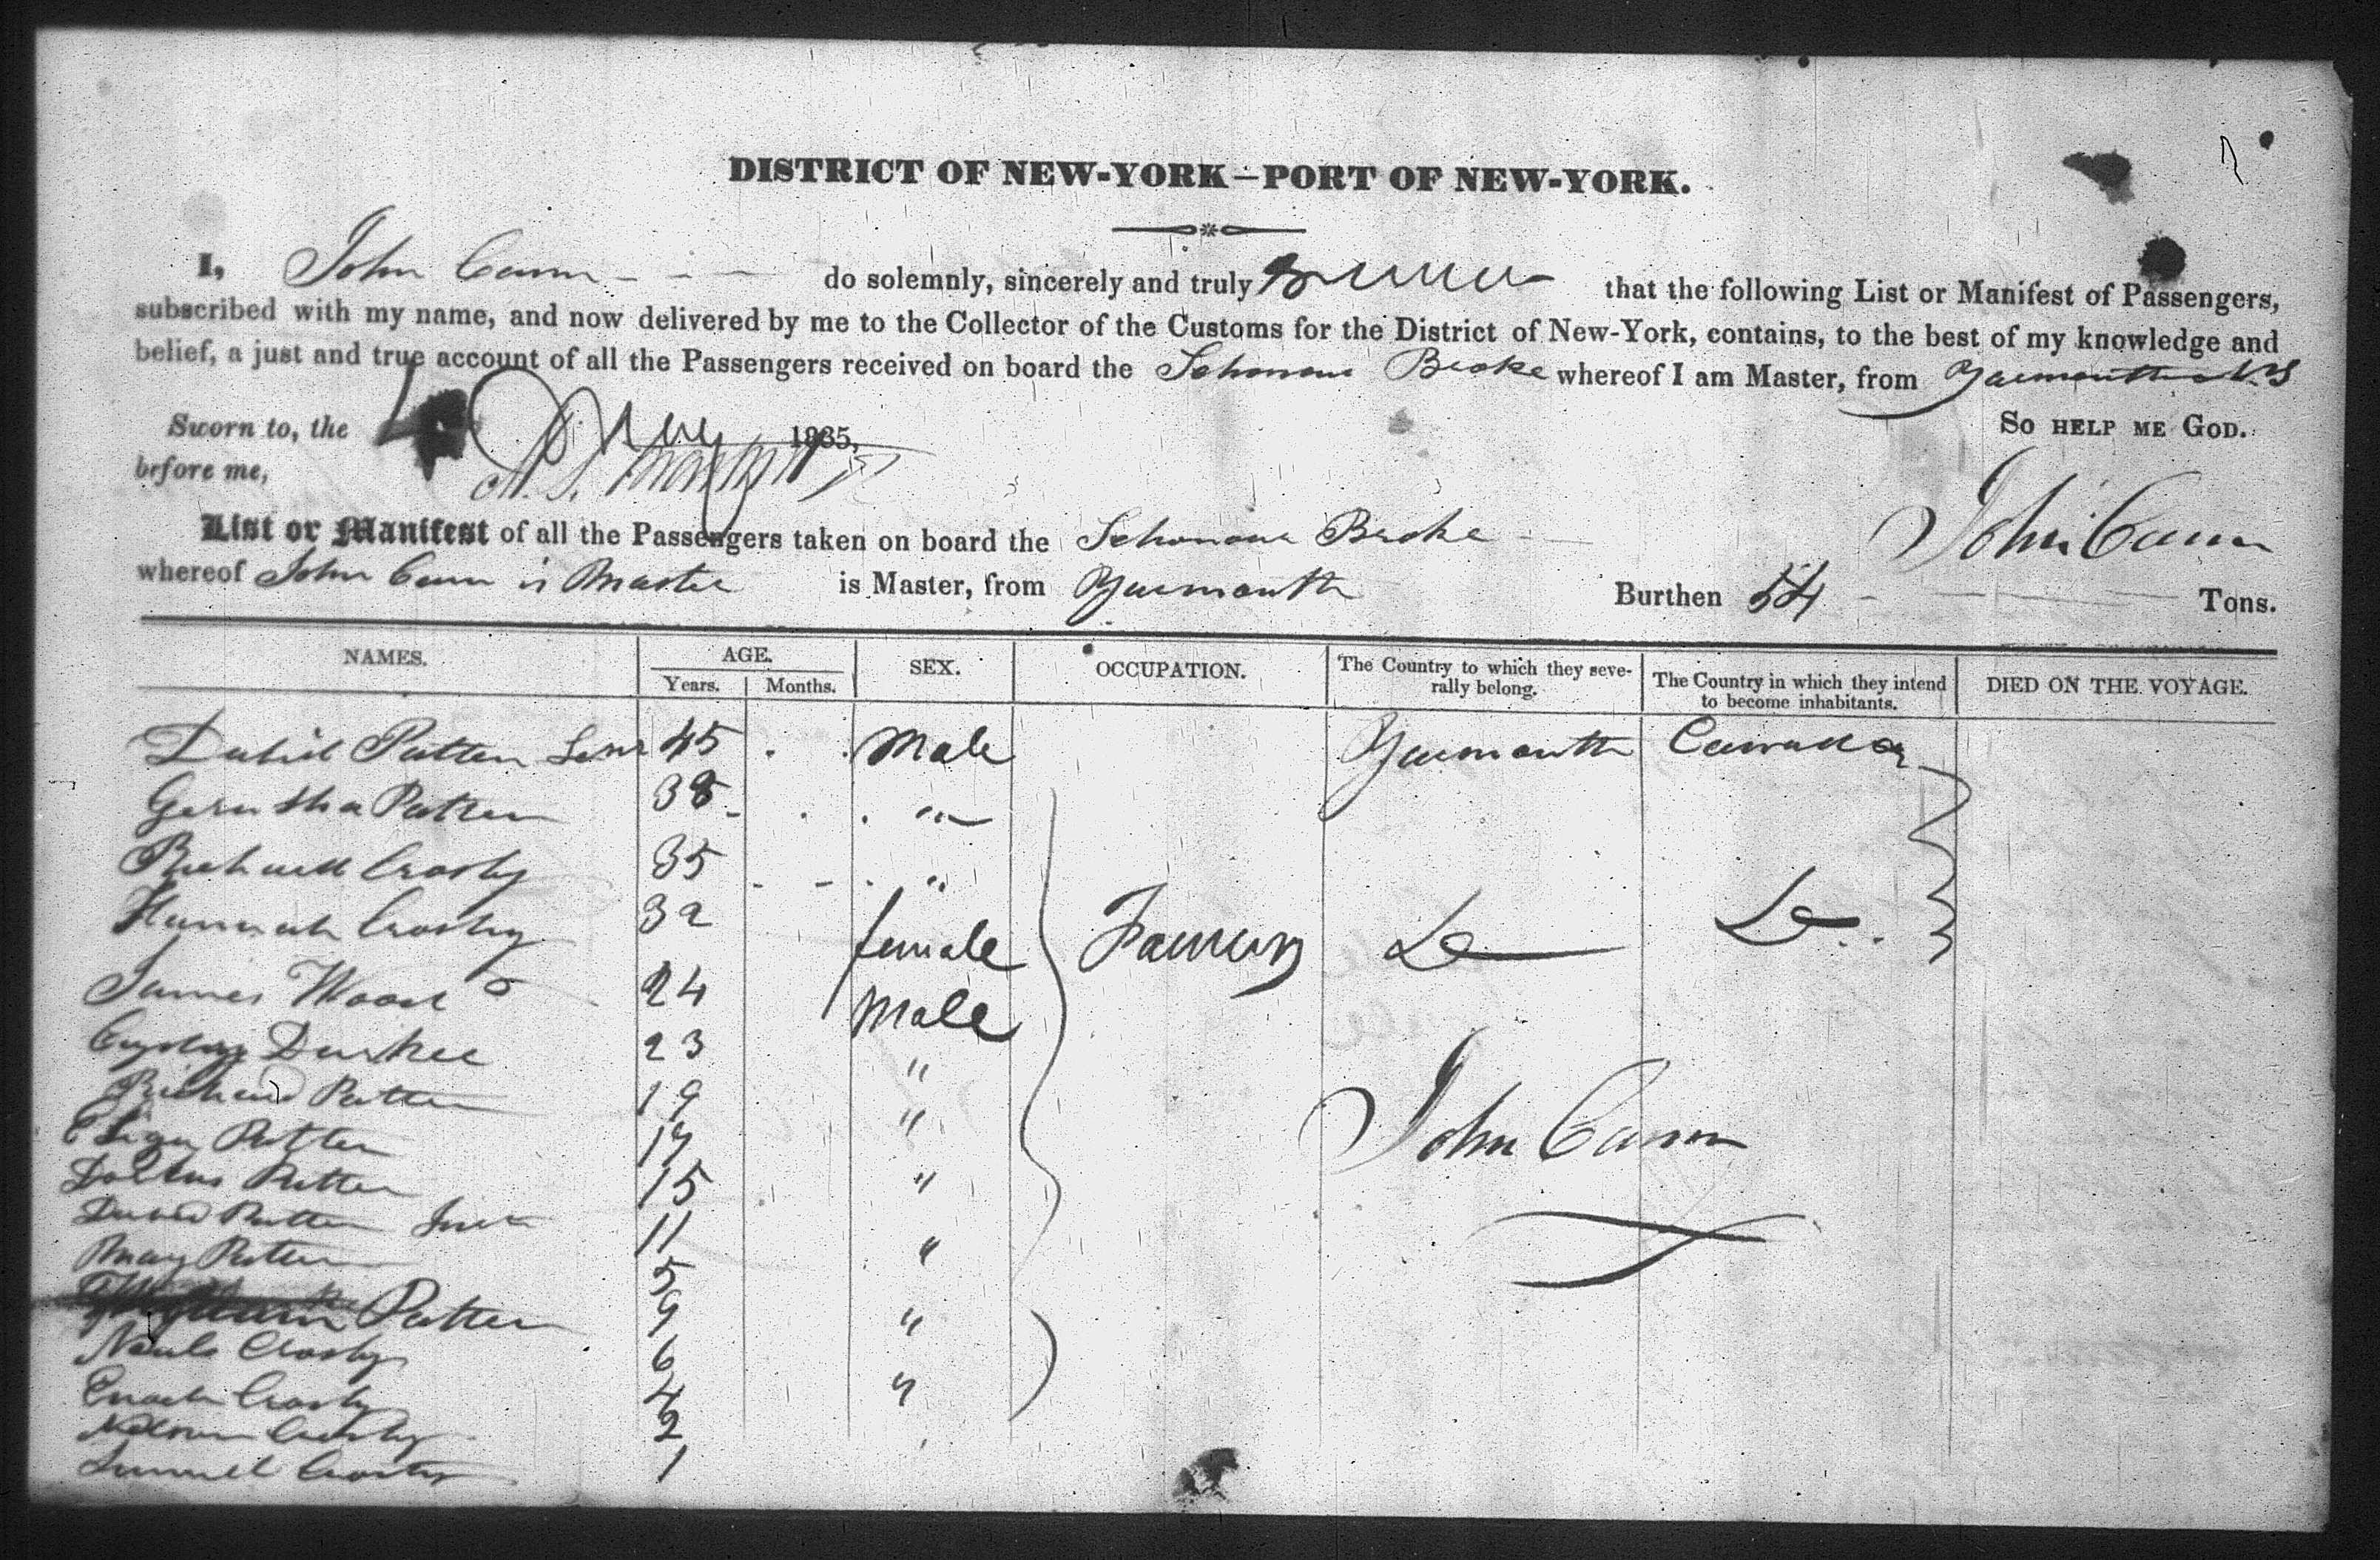 DISTRICT OF NEW-YORK—PORT OF NEW-YORK.
I, John Cann - - - do solemnly, sincerely and truly that the following List or Manifest of Passengers,
subscribed with my name, and now delivered by me to the Collector of the Customs for the District of New-York, contains, to the best of my knowledge and
belief, a just and true account of all the Passengers received on board the whereof I am Master, from Yarmouth N.S
Sworn to, the 4 1835, So HELP ME GOD.
before me,
John Cann
List or Manifest of all the Passengers taken on board the
whereof John Cann is Master is Master, from Yarmouth Burthen 54 - Tons.
NAMES. AGE. SEX. OCCUPATION. The Country to which they seve- The Country in which they intend DIED ON THE VOYAGE.
Years. Months. rally belong. to become inhabitants.
Patten Senr 45 Male Yarmouth Canada
Patten 38 "
Crosby 35 "
Hannah Crosby 32 female Do Do
James Wood 24 Male
Durkee 23 "
Richard Patten 19 "
Eliza Patten 17
Patten 15 "
David Patten 11
Mary Patten 5 "
Patten 9 "
Crosby 6
Enoch Crosby 4 "
Nelson Crosby 2
Crosby 1
John Cann